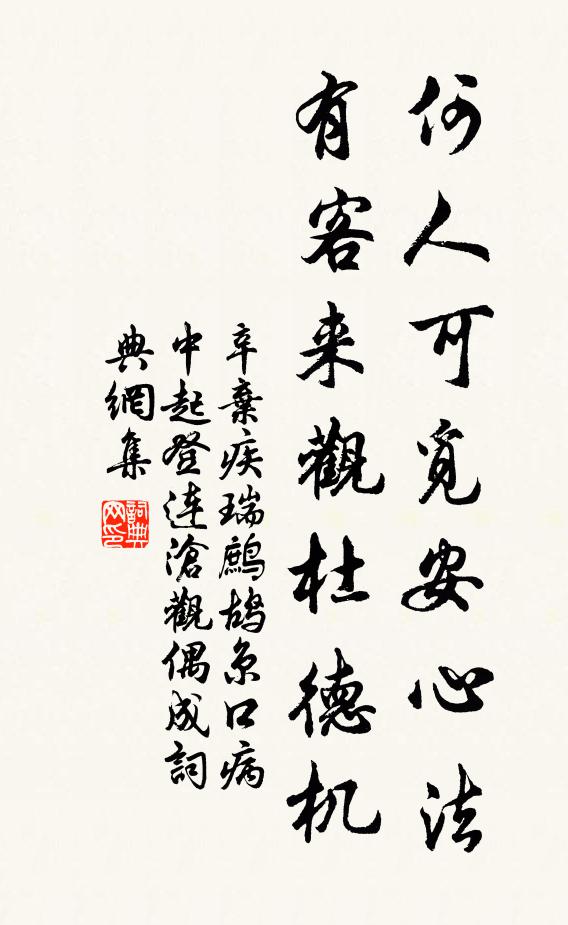 何人可覓安心法
有客来觀杜德机
辛棄疾瑞鷓鴣京口病
中起登连滄觀偶成詞
典網集
詞典网印